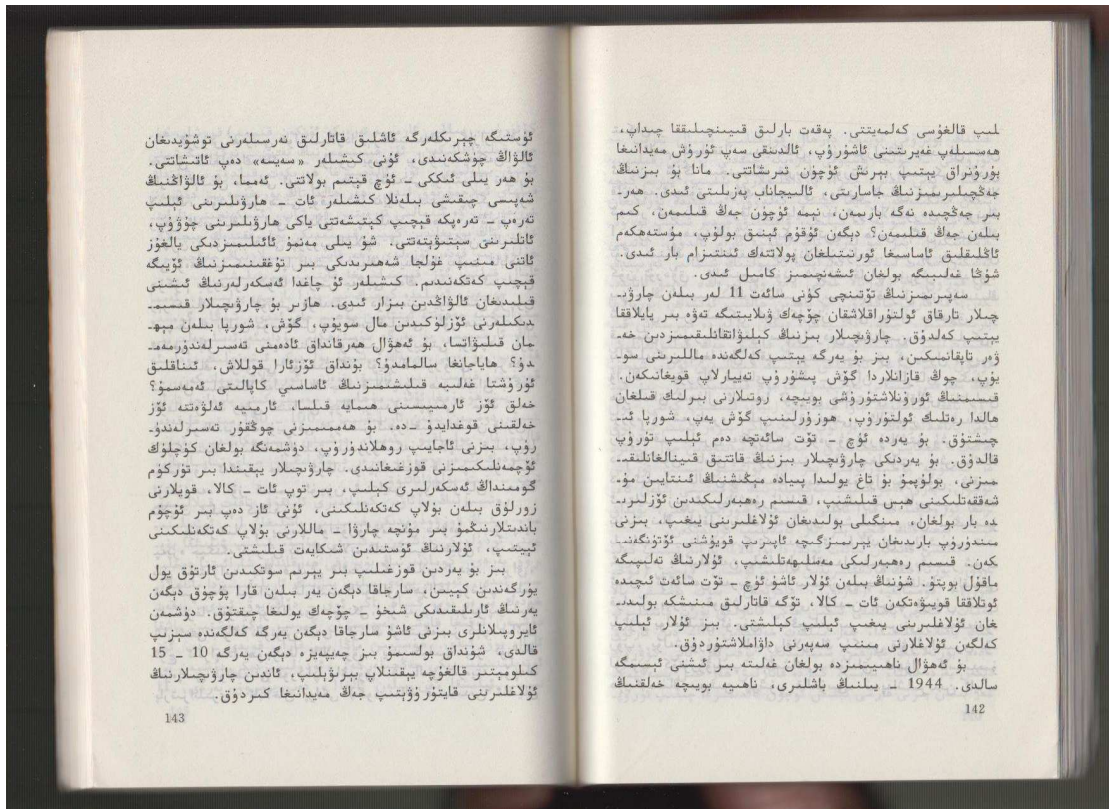 لىپ قالغۇسى كەلمەيتتى. پەقەت بارلىق قىيىنچىلىققا چىداپ،
ھەسسىلەپ غەيرىتىنى ئاشۇرۇپ، ئالدىنقى سەپ ئۇرۇش مەيدانىغا
بۇرۇنراق يېتىپ بېرىش ئۈچۈن تىرىشاتتى. مانا بۇ بىزنىڭ
جەڭچىلىرىمىزنىڭ جاسارىتى، ئالىيجاناب پەزىلىتى ئىدى. ھەر-
بىر جەڭچىدە نەگە بارىمەن، نېمە ئۈچۈن جەڭ قىلىمەن، كىم
بىلەن جەڭ قىلىمەن؟ دېگەن ئۇقۇم ئېنىق بولۇپ، مۇستەھكەم
ئاڭلىقلىق ئاساسىغا ئورنىتىلغان پولاتتەك ئىنتىزام بار ئىدى.
شۇڭا غەلىبىگە بولغان ئىشەنچىمىز كامىل ئىدى.
سەپىرىمىزنىڭ تۆتىنچى كۈنى سائەت 11 لەر بىلەن چارۋى-
چىلار تارقاق ئولتۇراقلاشقان چۆچەك ۋىلايىتىگە تەۋە بىر يايلاققا
يېتىپ كەلدۇق. چارۋىچىلار بىزنىڭ كېلىۋاتقانلىقىمىزدىن خە-
ۋەر تاپقانمىكىن، بىز بۇ يەرگە يېتىپ كەلگەندە ماللىرىنى سو-
يۇپ، چوڭ قازانلاردا گۆش پىشۇرۇپ تەييارلاپ قويغانىكەن.
قىسىمنىڭ ئورۇنلاشتۇرۇشى بويىچە، روتىلارنى بىرلىك قىلغان
ھالدا رەتلىك ئولتۇرۇپ، ھوزۇرلىنىپ گۆش يەپ، شورپا ئى-
چىشتۇق. بۇ يەردە ئۈچ - تۆت سائەتچە دەم ئېلىپ تۇرۇپ
قالدۇق. بۇ يەردىكى چارۋىچىلار بىزنىڭ قاتتىق قىينالغانلىقى-
مىزنى، بولۇپمۇ بۇ تاغ يولىدا پىيادە مېڭىشنىڭ ئىنتايىن مۇ-
شەققەتلىكىنى ھېس قىلىشىپ، قىسىم رەھبەرلىكىدىن ئۆزلىرى-
دە بار بولغان، مىنگىلى بولىدىغان ئۇلاغلىرىنى يىغىپ، بىزنى
مىندۈرۈپ بارىدىغان يېرىمىزگىچە ئاپىرىپ قويۇشنى ئۆتۈنگەنى-
كەن. قىسىم رەھبەرلىكى مەسلىھەتلىشىپ، ئۇلارنىڭ تەلىپىگە
ماقۇل بوپتۇ. شۇنىڭ بىلەن ئۇلار ئاشۇ ئۈچ - تۆت سائەت ئىچىدە
ئوتلاققا قويۇۋەتكەن ئات - كالا، تۆگە قاتارلىق مىنىشكە بولىدى-
غان ئۇلاغلىرىنى يىغىپ ئېلىپ كېلىشتى. بىز ئۇلار ئېلىپ
كەلگەن ئۇلاغلارنى مىنىپ سەپەرنى داۋاملاشتۇردۇق.
بۇ ئەھۋال ناھىيىمىزدە بولغان غەلىتە بىر ئىشنى ئېسىمگە
سالدى. 1944 - يىلنىڭ باشلىرى، ناھىيە بويىچە خەلقنىڭ
142
ئۈستىگە چېرىكلەرگە ئاشلىق قاتارلىق نەرسىلەرنى توشۇيدىغان
ئالۋاڭ چۈشكەنىدى، ئۇنى كىشىلەر «سەيسە» دەپ ئاتىشاتتى.
بۇ ھەر يىلى ئىككى - ئۈچ قېتىم بولاتتى. ئەمما، بۇ ئالۋاڭنىڭ
شەپىسى چىقىشى بىلەنلا كىشىلەر ئات - ھارۋىلىرىنى ئېلىپ
تەرەپ - تەرەپكە قېچىپ كېتىشەتتى ياكى ھارۋىلىرىنى چۇۋۇپ،
ئاتلىرىنى سېتىۋېتەتتى. شۇ يىلى مەنمۇ ئائىلىمىزدىكى يالغۇز
ئاتنى مىنىپ غۇلجا شەھىرىدىكى بىر تۇغقىنىمىزنىڭ ئۆيىگە
قېچىپ كەتكەنىدىم. كىشىلەر ئۇ چاغدا ئەسكەرلەرنىڭ ئىشىنى
قىلىدىغان ئالۋاڭدىن بىزار ئىدى. ھازىر بۇ چارۋىچىلار قىسىم-
دىكىلەرنى ئۆزلۈكىدىن مال سويۇپ، گۆش، شورپا بىلەن مېھ-
مان قىلىۋاتسا، بۇ ئەھۋال ھەرقانداق ئادەمنى تەسىرلەندۈرمەم-
دۇ؟ ھاياجانغا سالمامدۇ؟ بۇنداق ئۆزئارا قوللاش، ئىناقلىق
ئۇرۇشتا غەلىبە قىلىشىمىزنىڭ ئاساسىي كاپالىتى ئەمەسمۇ؟
خەلق ئۆز ئارمىيىسىنى ھىمايە قىلسا، ئارمىيە ئەلۋەتتە ئۆز
خەلقىنى قوغدايدۇ -دە. بۇ ھەممىمىزنى چوڭقۇر تەسىرلەندۈ-
رۈپ، بىزنى ئاجايىپ روھلاندۇرۇپ، دۈشمەنگە بولغان كۈچلۈك
ئۆچمەنلىكىمىزنى قوزغىغانىدى. چارۋىچىلار يېقىندا بىر تۈركۈم
گومىنداڭ ئەسكەرلىرى كېلىپ، بىر توپ ئات - كالا، قويلارنى
زورلۇق بىلەن بۇلاپ كەتكەنلىكىنى، ئۇنى ئاز دەپ بىر ئۇچۇم
باندىتلارنىڭمۇ بىر مۇنچە چارۋا - ماللارنى بۇلاپ كەتكەنلىكىنى
ئېيتىپ، ئۇلارنىڭ ئۈستىدىن شىكايەت قىلىشتى.
بىز بۇ يەردىن قوزغىلىپ بىر يېرىم سوتكىدىن ئارتۇق يول
يۈرگەندىن كېيىن، سارجاقا دېگەن يەر بىلەن قارا پۇچۇق دېگەن
يەرنىڭ ئارىلىقىدىكى شىخۇ - چۆچەك يولىغا چىقتۇق. دۈشمەن
ئايروپىلانلىرى بىزنى ئاشۇ سارجاقا دېگەن يەرگە كەلگەندە سېزىپ
قالدى، شۇنداق بولسىمۇ بىز چەيپەيزە دېگەن يەرگە 10 - 15
كىلومېتىر قالغۇچە يېقىنلاپ بېرىۋېلىپ، ئاندىن چارۋىچىلارنىڭ
ئۇلاغلىرىنى قايتۇرۇۋېتىپ جەڭ مەيدانىغا كىردۇق.
143